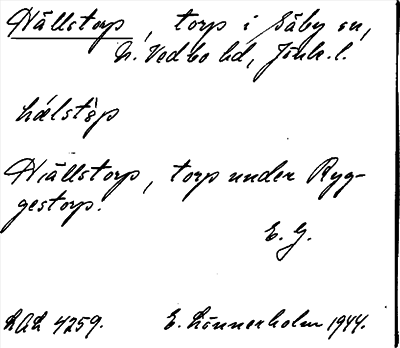 Hällstorp, torp i Säby sn,
N. Vedbo hd, Jönk. l.
hálstòp
Hiällstorp, torp under Ryg-
gestorp.
E. G.
LAL 4259. E. Lönnerholm 1944.